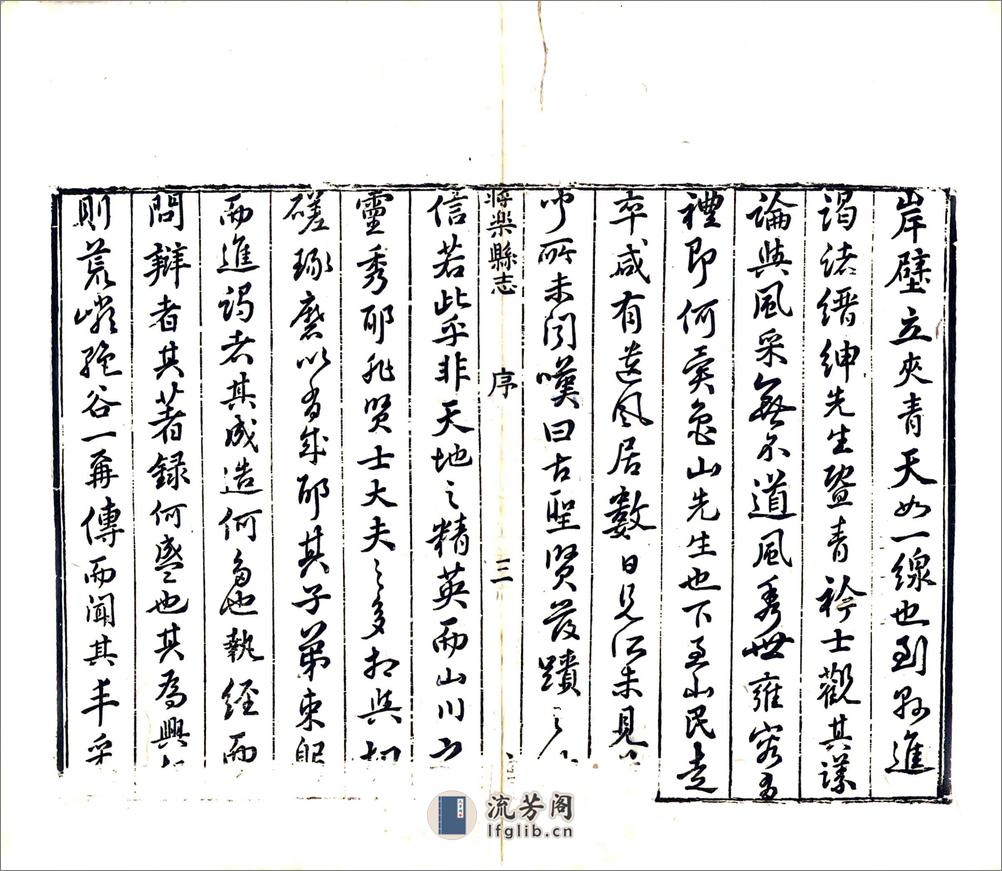 岸壁立夾青天如一線也到縣進
謁諸縉紳先生暨青衿士觀其議
論與風采無不道風秀世雍容有
禮即何異龜山先生也下至山民走
卒咸有遺風居數日見所未見
中所未聞嘆曰古聖賢發蹟之
將樂縣志 序 三
信若此乎非天地之精英而山川之
靈秀耶非賢士大夫之多相與切
磋琢磨以有成耶其子弟束躬
而進謁者其成造何多也執經而
問辯者其著録何盛也其為興
則荒巇絕谷一再傳而聞其丰采
流芳阁
lfglib.cn